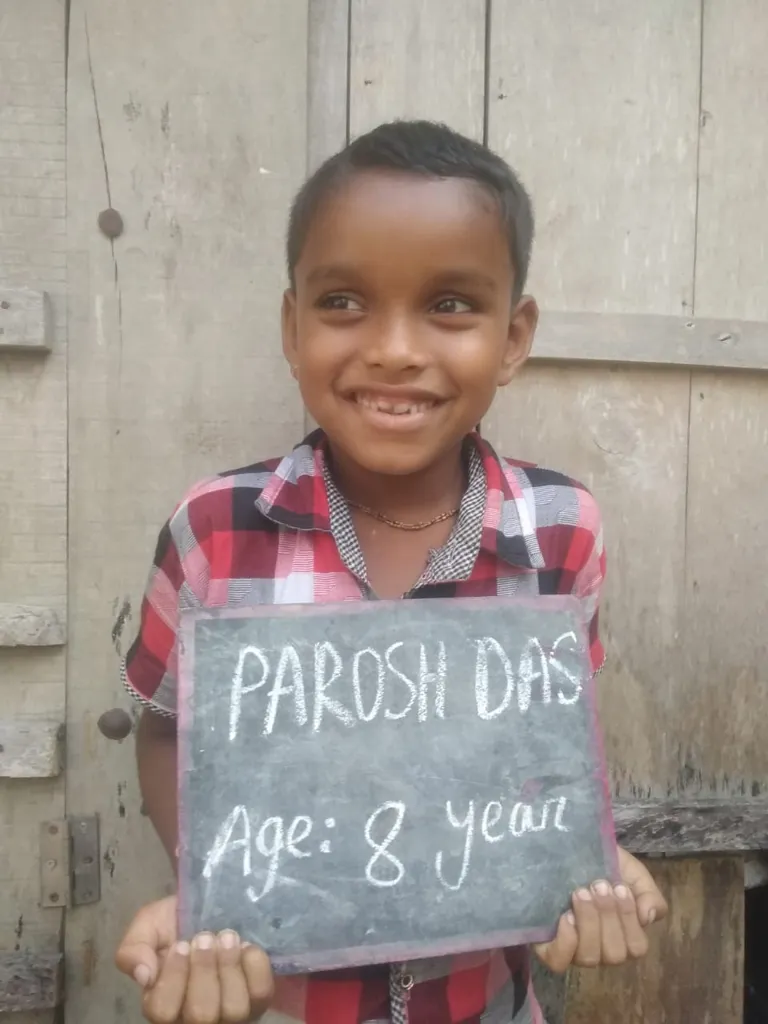 PAROSH DAS
Age: 8 year